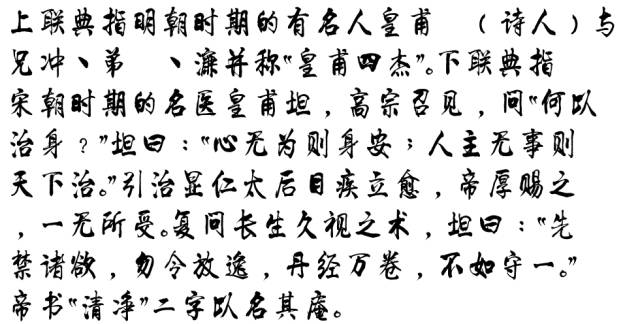 上联典指明朝时期的有名人皇甫　（诗人）与
兄冲丶弟　丶濂并称“皇甫四杰”。下联典指
宋朝时期的名医皇甫坦，高宗召见，问“何以
治身？”坦曰：“心无为则身安；人主无事则
天下治。”引治显仁太后目疾立愈，帝厚赐之
，一无所受。复问长生久视之术，坦曰：“先
禁诸欲，勿令放逸，丹经万卷，不如守一。”
帝书“清净”二字以名其庵。